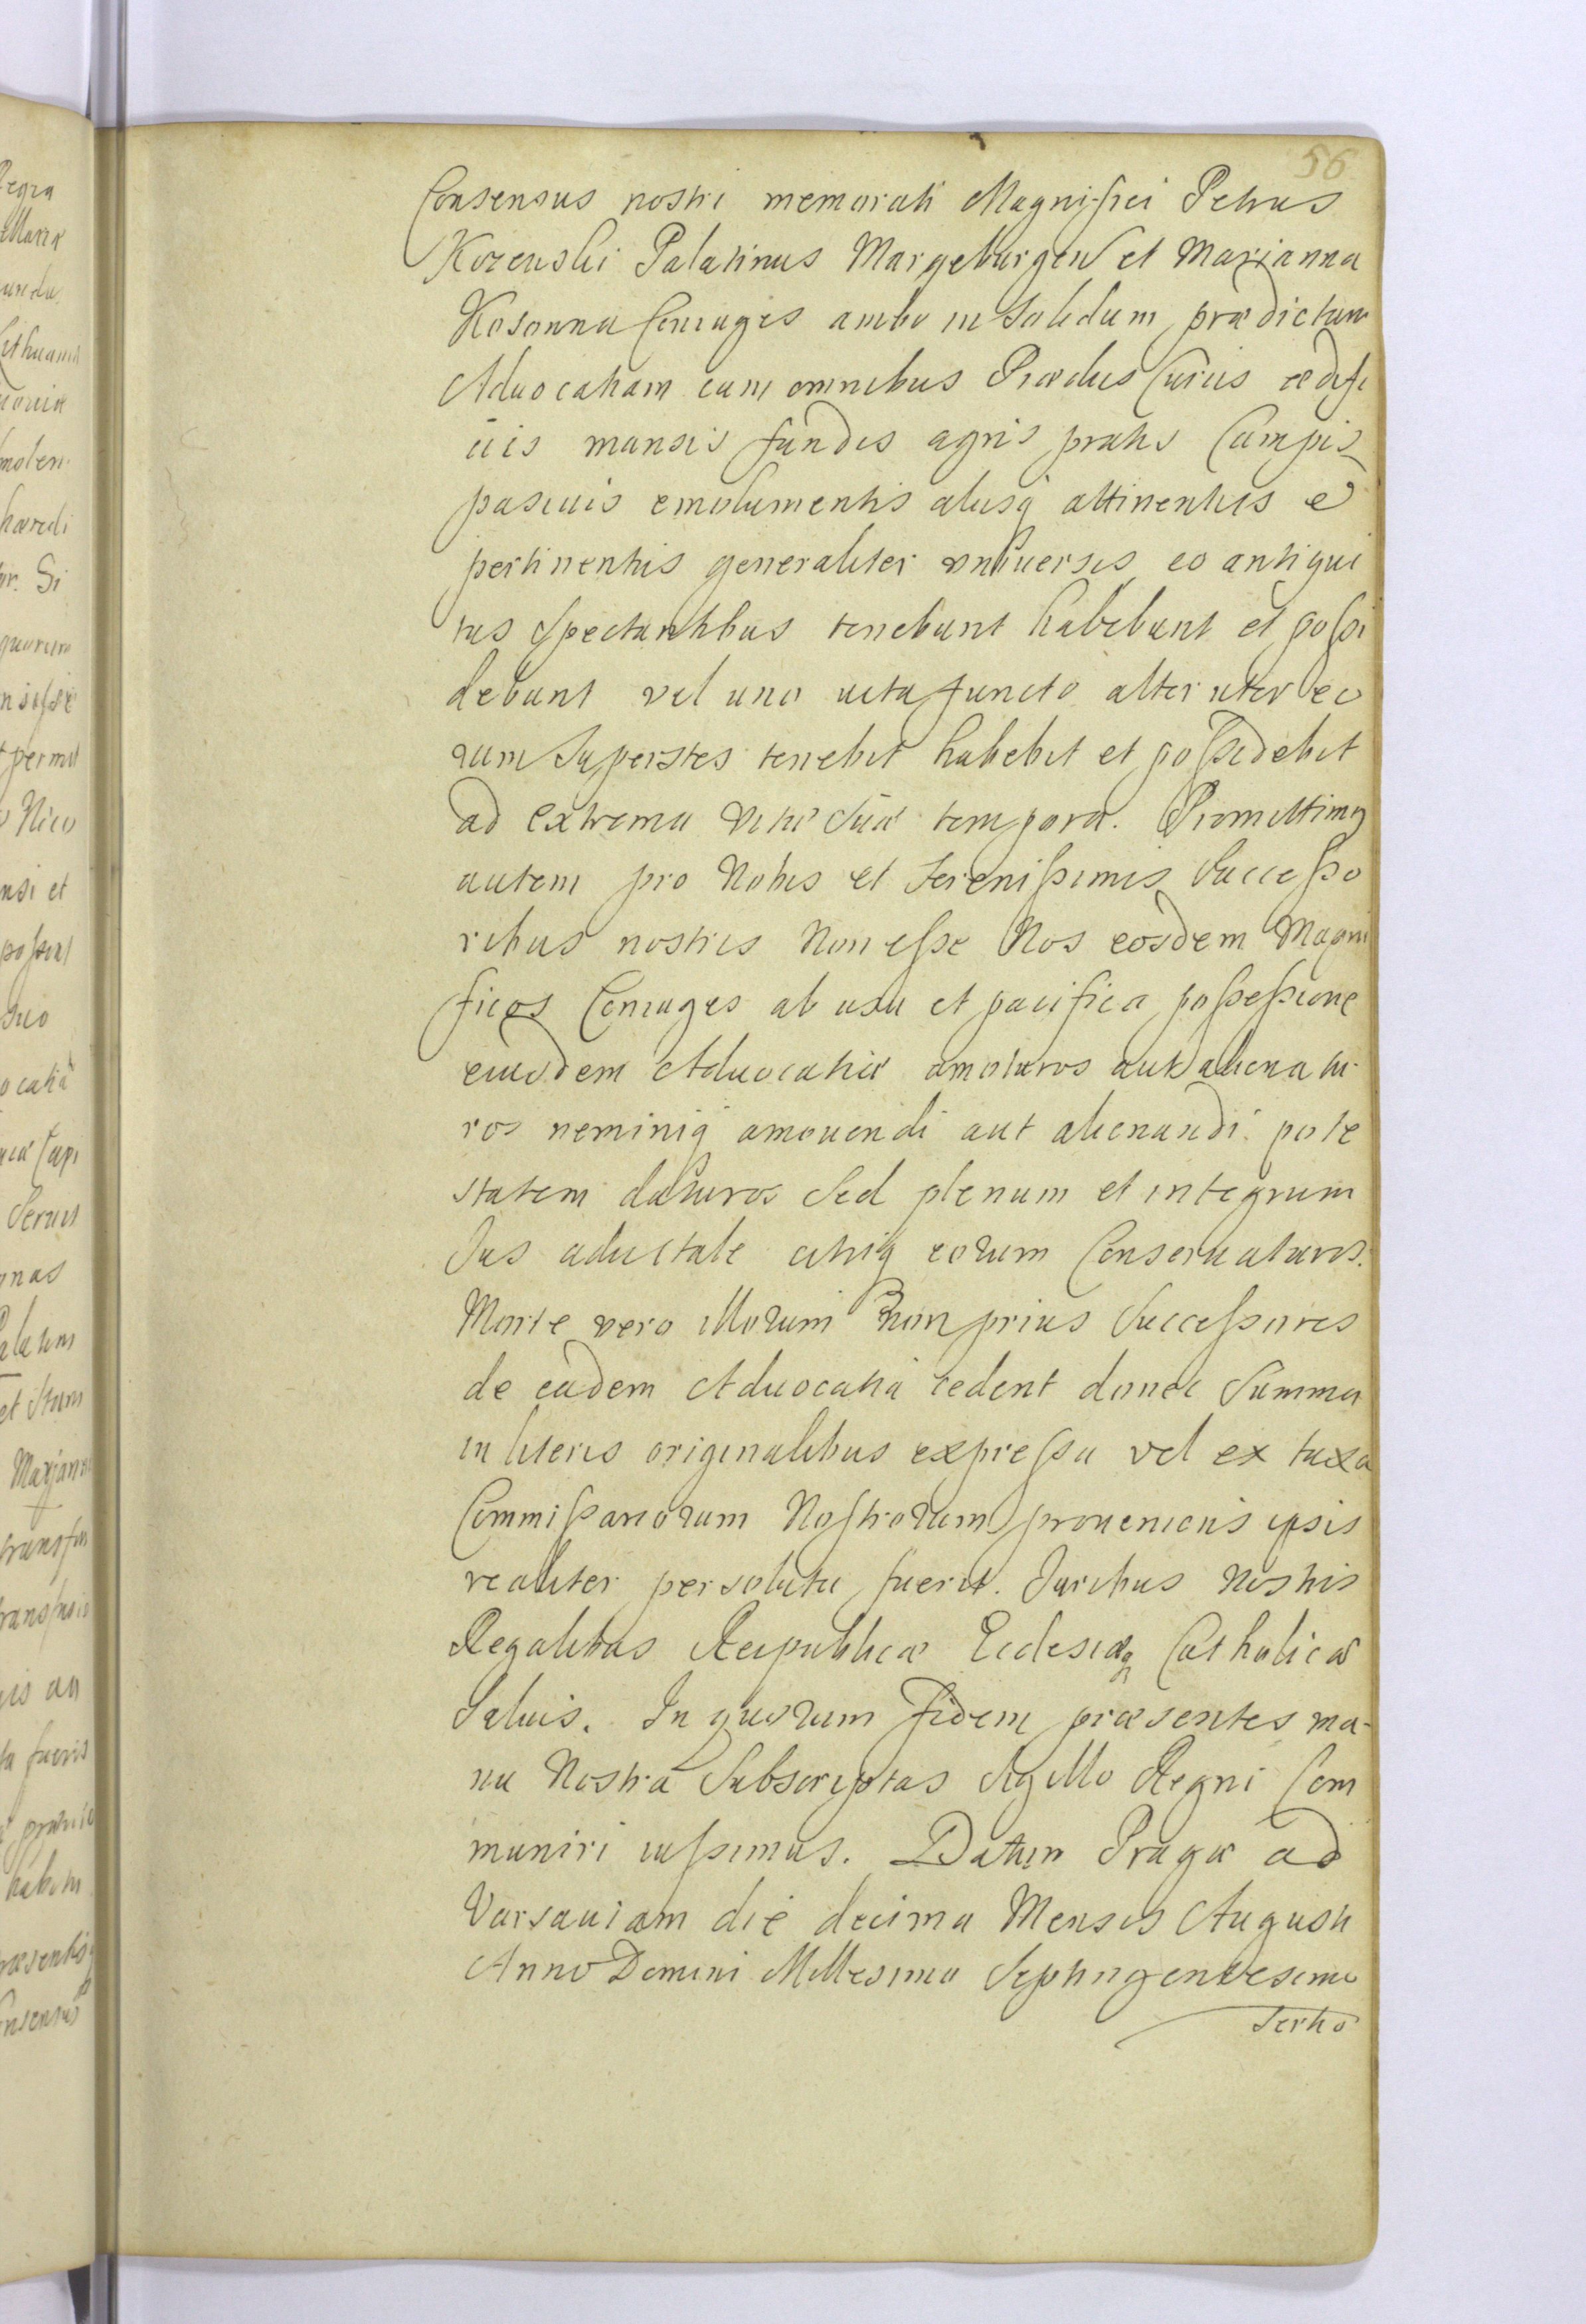 56
Consensus nostri memorati Magnifici Petrus
Kozewski Palatinus Margeburgen et Marianna
Kosonna Coniuges ambo in solidum prædictam
Aduocatiam cum omnibus Prædiis Curiis ædifi
ciis mansis fundis agris pratis Campis
pascuis emolumentis aliisq attinentiis e
pertinentiis generaliter vniuersis eo antiqui
tus spectantibus tenebunt habebunt et possi
debunt vel uno vita functo alteruter eo
rum superstes tenebit habebit et possidebit
ad extrema vitæ suæ tempora. Promittimq
autem pro Nobis et Serenissimis Successo
ribus nostris Non esse Nos eosdem Magni
ficos Coniuges ab usu et pacifica possessione
eiusdem Aduocatiæ amoturos aut alienatu-
ros neminiq amouendi aut alienandi pote
statem daturos Sed plenum et integrum
Jus aduitale utriq eorum Conseruaturos.
Morte vero illorum non prius Successores
de eâdem Aduocatiâ cedent donec Summa
in literis originalibus expressa vel ex taxa
Commissariorum Nostrorum proueniens ipsis
realiter persoluta fuerit. Juribus Nostris
Regalibus Reipublicæ Ecclesiæq Catholicæ
Saluis. In quorum fidem præsentes ma-
nu Nostrâ Subscriptas Sigillo Regni Com
muniri iussimus. Datum Pragæ ad
Varsauiam die decima Mensis Augusti
Anno Domini Millesimo Septingentesimo
Tertio
Regra
Lithuania
Nico
nsi et
suo
et Stam
Marjann
ta fueris